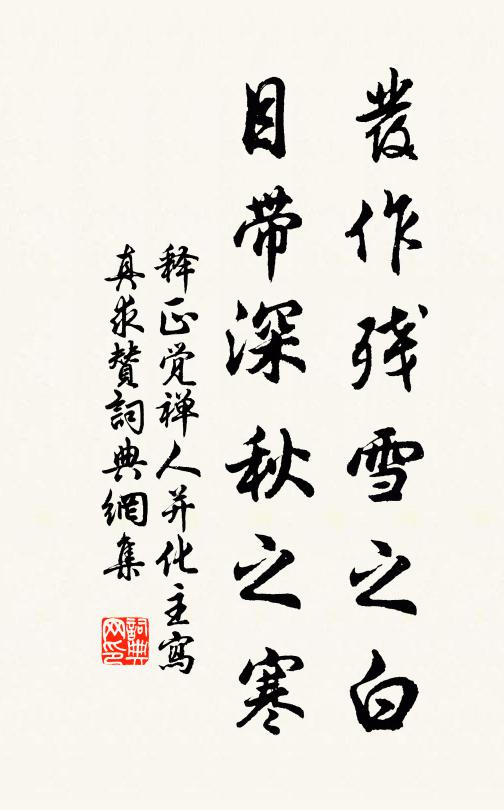 發作残雪之白
目带深秋之寒
释正觉禅人并化主寫
真求赞詞典網集
詞典网印